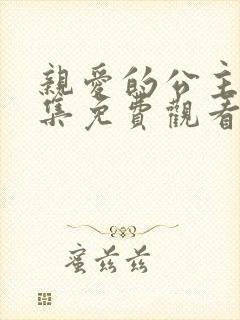 親愛的公主
集免費觀看
蜜茲茲